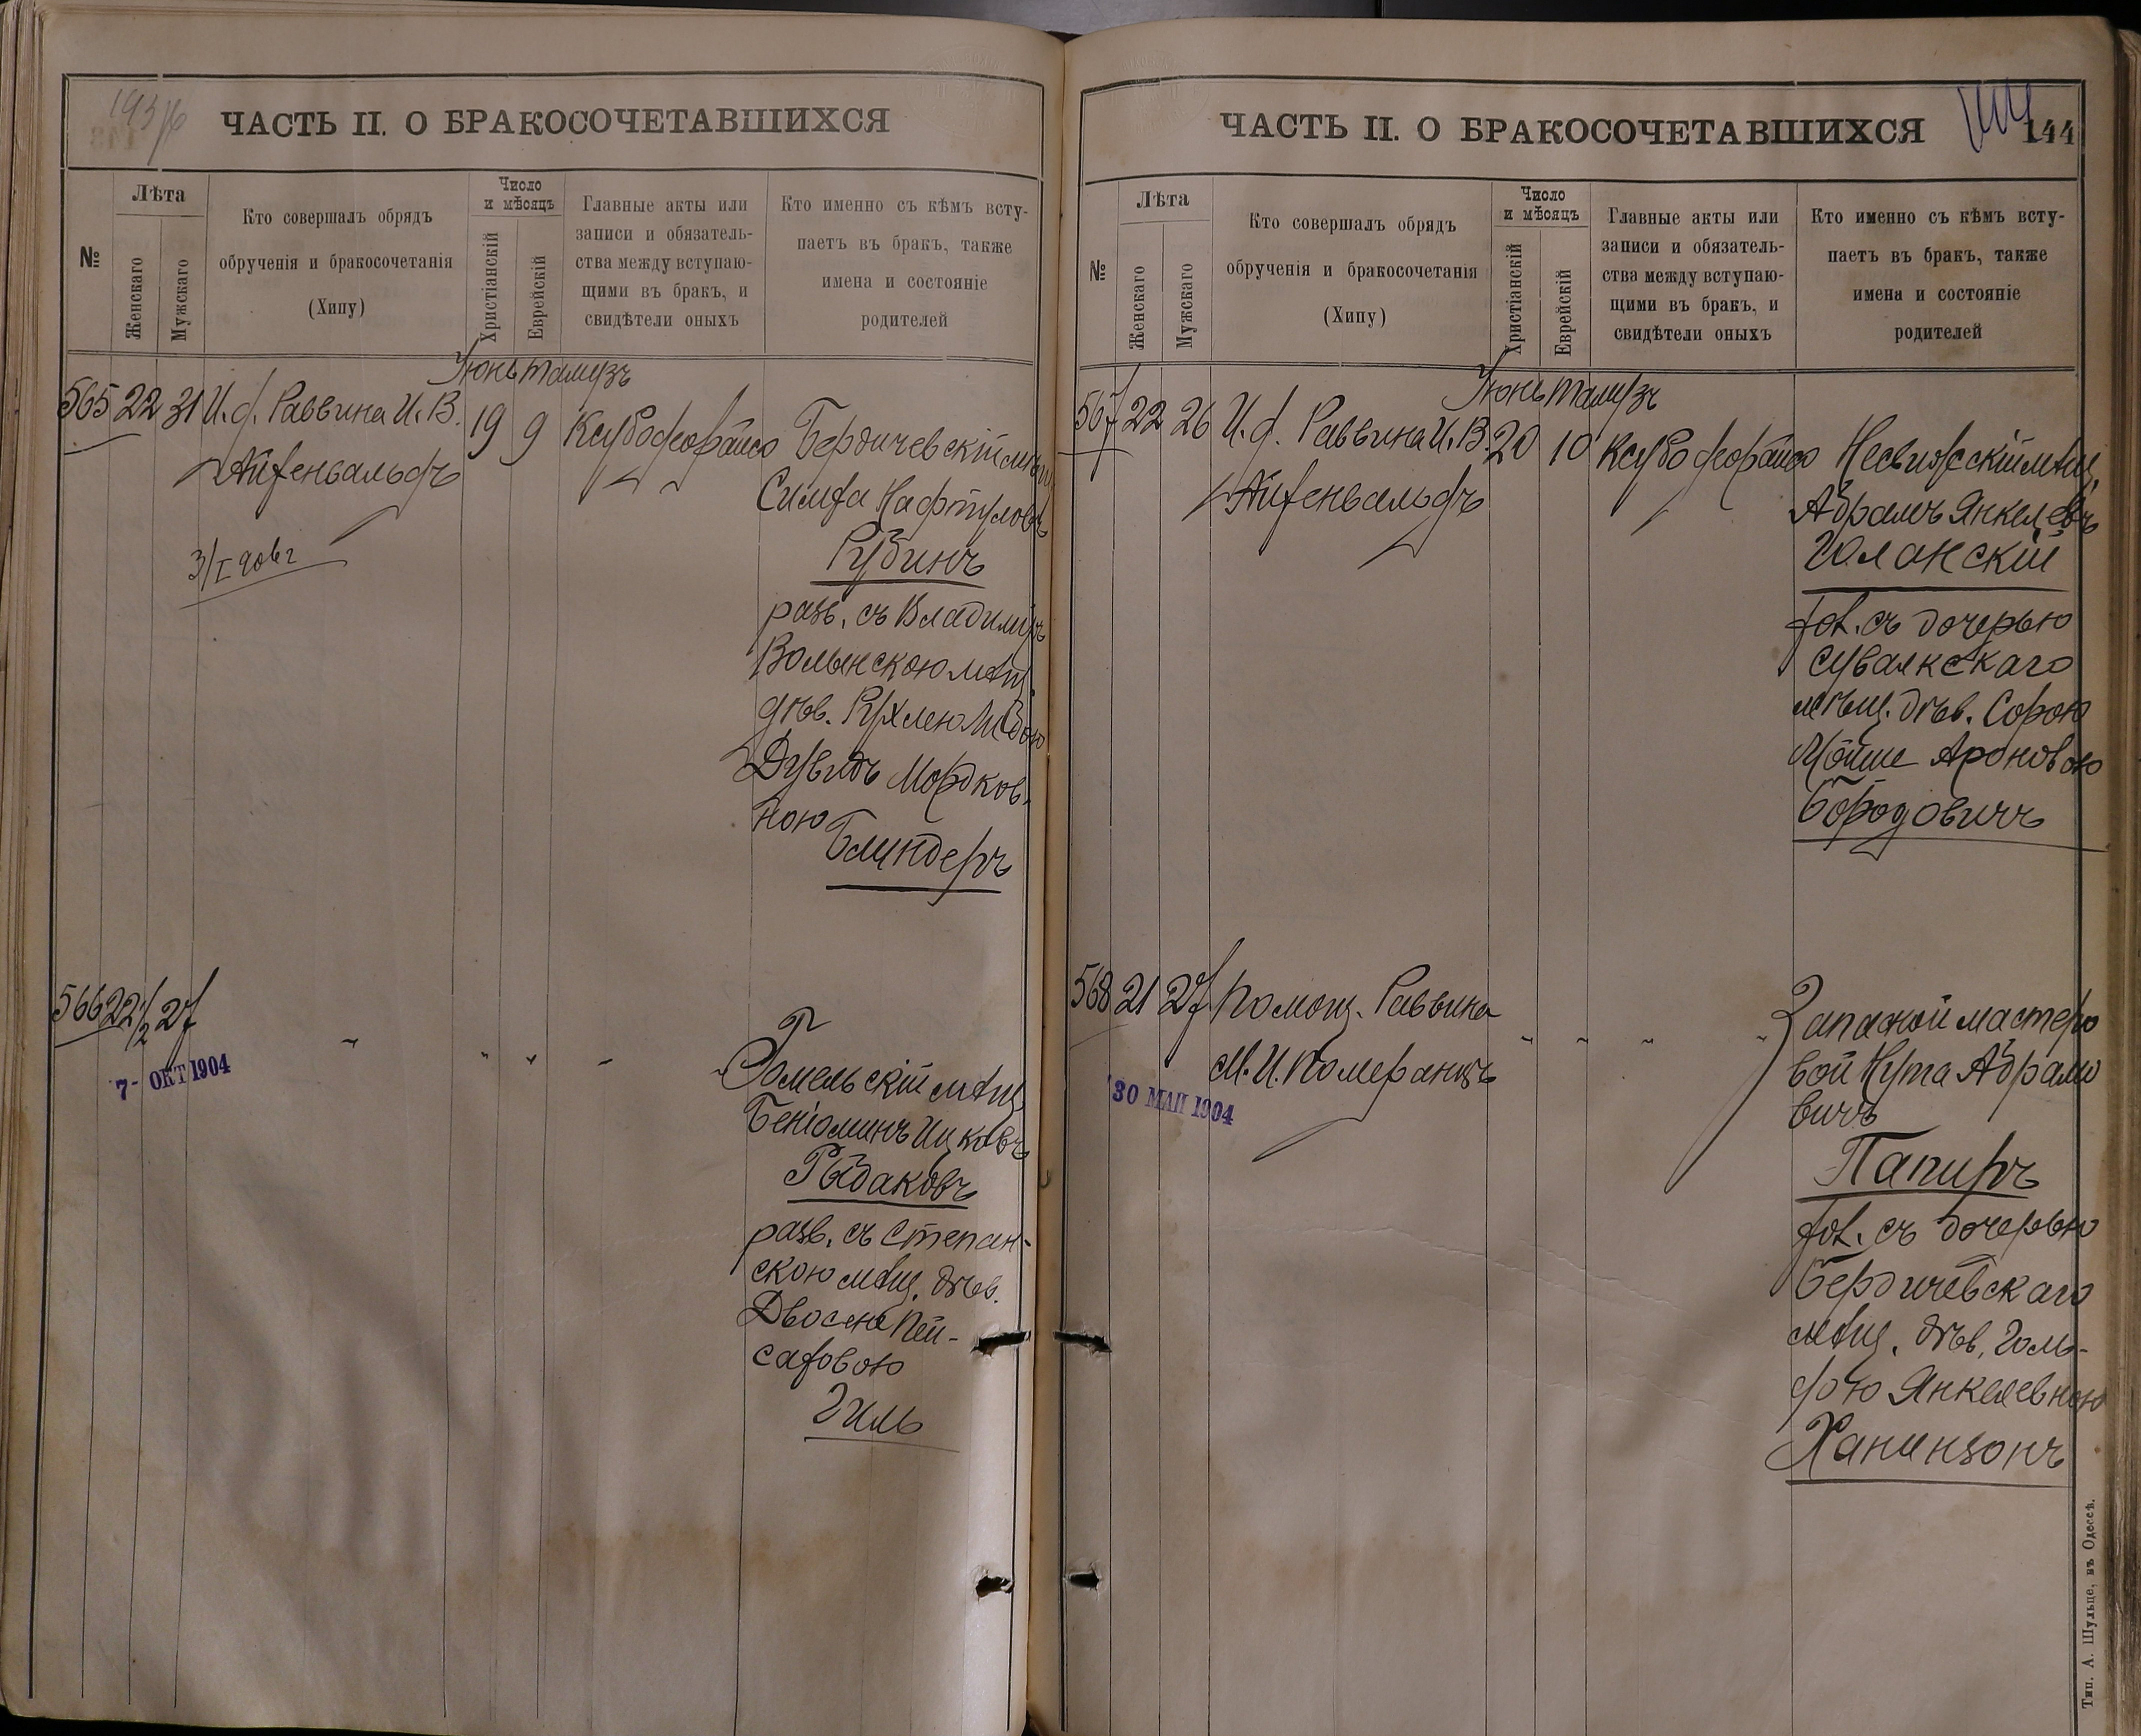 193
ЧАСТЬ II. О БРАКОСОЧЕТАВШИХСЯ
№
Лѣта
Женскаго
Мужскаго
Кто совершалъ обрядъ
обрученія и бракосочетанія
(Хипу)
Число
и мѣсяцъ
Христіанскій
Еврейскій
Главные акты или
записи и обязатель-
ства между вступаю-
щими въ бракъ, и
свидѣтели оныхъ
Кто именно съ кѣмъ всту-
паетъ въ бракъ, также
имена и состояніе
родителей
Іюнь тамузъ
565 22 31 И. д. Раввина И. В.
19 9
Бердичевскій
Симха Нафтулов
Рубинъ
разв. съ Владимір
Волынскою мѣщ.
дѣв.
Дувидъ Мордков-
ною
Блиндеръ
566 22 1/2 27
7 - ОКТ 1904
Гомельскій мѣщ.
Беніоминъ Ицковъ
Рыбаковъ
разв. съ Степан-
скою мѣщ. дѣв.
Двосею Пей-
саховою
Гиль
ЧАСТЬ II. О БРАКОСОЧЕТАВШИХСЯ
144
№
Лѣта
Женскаго
Мужскаго
Кто совершалъ обрядъ
обрученія и бракосочетанія
(Хипу)
Число
и мѣсяцъ
Христіанскій
Еврейскій
Главные акты или
записи и обязатель-
ства между вступаю-
щими въ бракъ, и
свидѣтели оныхъ
Кто именно съ кѣмъ всту-
паетъ въ бракъ, также
имена и состояніе
родителей
Іюнь тамузъ
567 22 26 И. д. Раввина И. В.
20 10
Несвижскій мѣщ.
Абрамъ Янкелевъ
Голанскій
хол. съ дочерью
сувалкскаго
мѣщ. дѣв. Сорою
Ароновою
Бородовичъ
568 21 27 Помощ. Раввина
М. И. Померанцъ
30 МАЙ 1904
Запасной мастеро
вой Нута Абрамо
вичъ
Папиръ
хол. съ дочерью
Бердичевскаго
мѣщ. дѣв. Голь-
дою Янкелевною
Ханинзонъ
Тип. А. Шульце, въ Одессѣ.